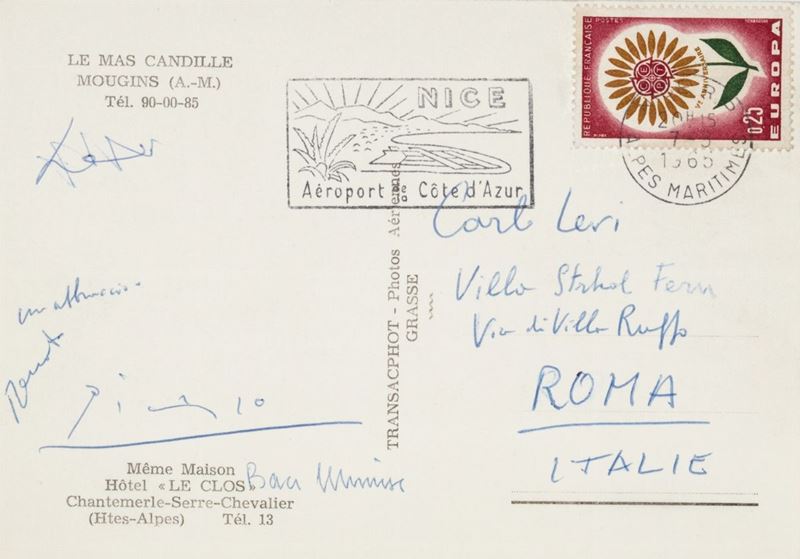 LE MAS CANDILLE
MOUGINS (A.-M.)
Tél. 90-00-85
un abbraccio
Renato
Picasso
Même Maison
Hôtel « LE CLOS »
Baci
Chantemerle-Serre-Chevalier
(Htes-Alpes) Tél. 13
TRANSACPHOT - Photos Aériennes
GRASSE
NICE
Aéroport de la Côte d'Azur
RÉPUBLIQUE FRANÇAISE
POSTES
Ve ANNIVERSAIRE
EUROPA
0,25
1965
ALPES MARITIMES
Carlo Levi
Villa Strhol Fern
Via di Villa Ruffo
ROMA
ITALIE